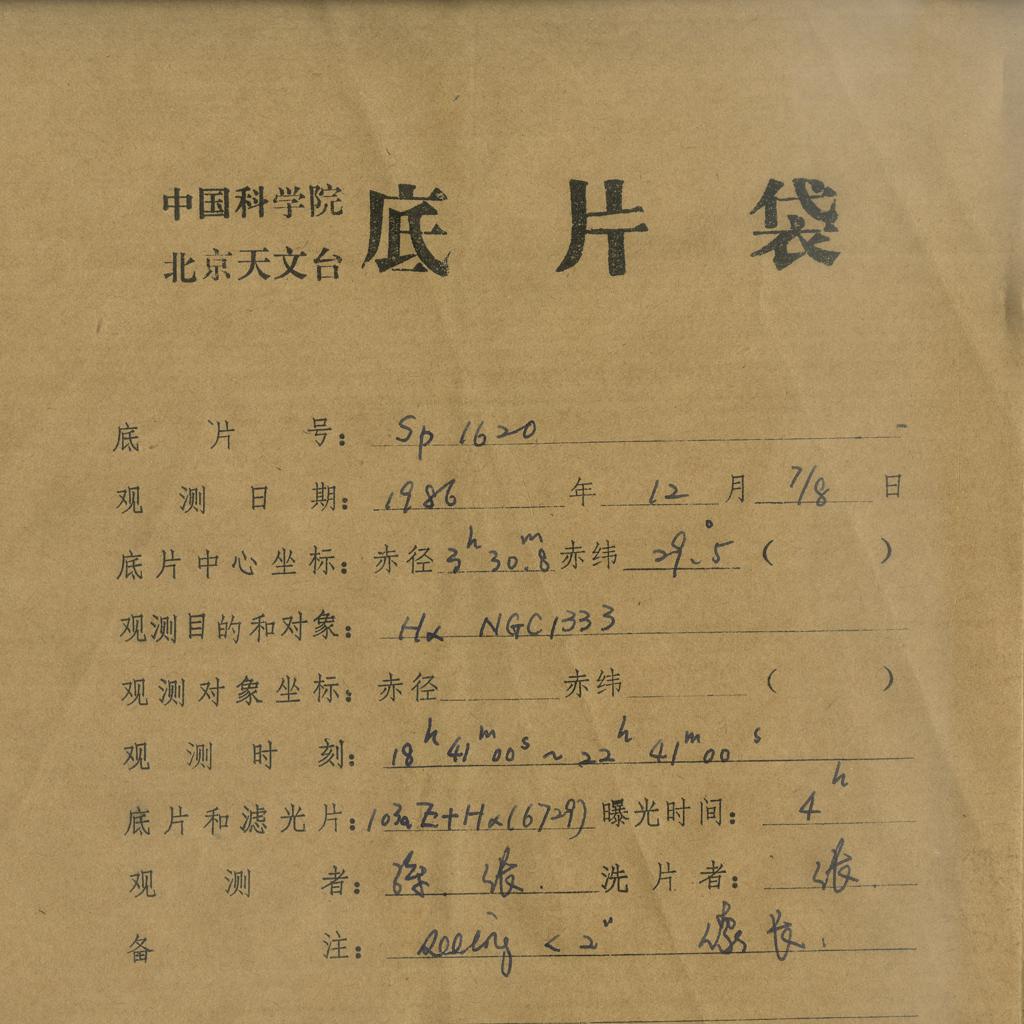 中国科学院
北京天文台
底片袋
底片号: Sp 1620
观测日期: 1986 年 12 月 7/8 日
底片中心坐标: 赤径 3h 30m.8 赤纬 29°.5 ( )
观测目的和对象: Hα NGC1333
观测对象坐标: 赤径 赤纬 ( )
观测时刻: 18h 41m 00s ~ 22h 41m 00s
底片和滤光片: 103aE+Hα(6729) 曝光时间: 4h
观测者: 张. 洗片者: 张.
备注: seeing < 2"